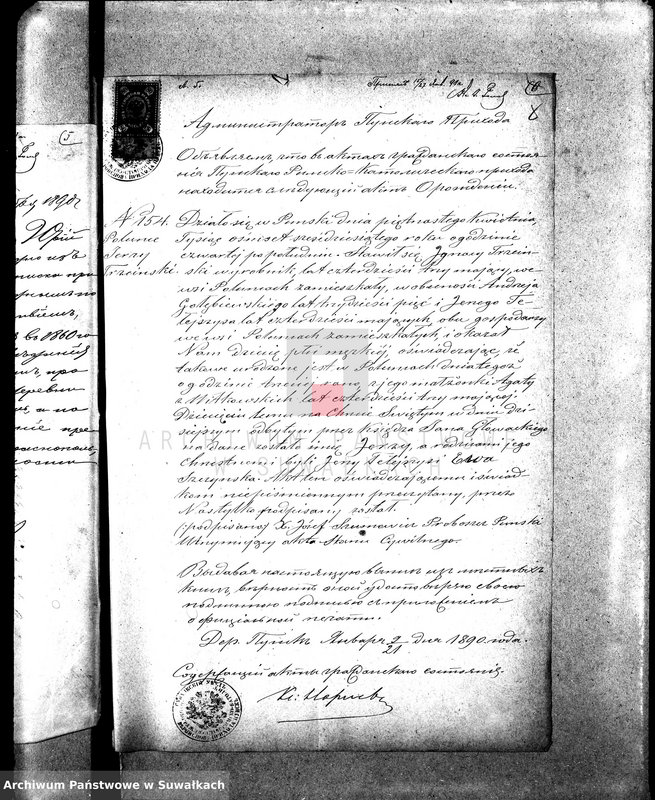 Администраторъ Пунскаго Прихода
Объявляетъ, что въ актахъ гражданскаго состоя-
нія Пунскаго Римско-Католическаго прихода
находится слѣдующій актъ О рожденіи.
№ 154.
Polunce
Jerzy
Trzeinski.
Działo się w Puńsku dnia piętnastego Kwietnia,
Tysiąc ośmset sześćdziesiątego roku o godzinie
czwartej po południu. Stawił się Ignacy Trzein-
ski wyrobnik, lat czterdzieści trzy mający, we
wsi Poluncach zamieszkały, w obecności Andrzeja
Gołębiewskiego lat trzydzieści pięć i Jerzego
lat czterdzieści mających, obu gospodarzy
we wsi Poluncach zamieszkałych, i okazał
Nam dziecię płci męzkiej, oświadczając, że
takowe urodzone jest w Poluncach dnia tegoż
o godzinie rano, z jego małżonki Agaty
z Witkowskich lat czterdzieści trzy mającej.
Dziecięciu temu na Chrzcie Świętym w dniu dzi-
siejszym odbytym przez księdza Jana Głowackiego
nadane zostało imię Jerzy, a rodzicami jego
chrzestnemi byli Jerzy i Ewa
Akt ten oświadczającemu i świad-
kom niepiśmiennym przeczytany, przez
Nas tylko podpisany został.
(:podpisano) X. Józef Proboszcz Puński
Utrzymujący akta Stanu Cywilnego.
Выдавая настоящую выпись изъ
книгъ, вѣрность оной удостовѣряю своею
подписью съ приложеніемъ
официальной печати.
Дер. Пунскъ Января 9/21 дня 1890 года.
Содержащій акты гражданскаго состоянія.
5
1890
Юрій
въ 1860 го
ARCHIWUM PAŃSTWOWE
W SUWAŁKACH
Archiwum Państwowe w Suwałkach